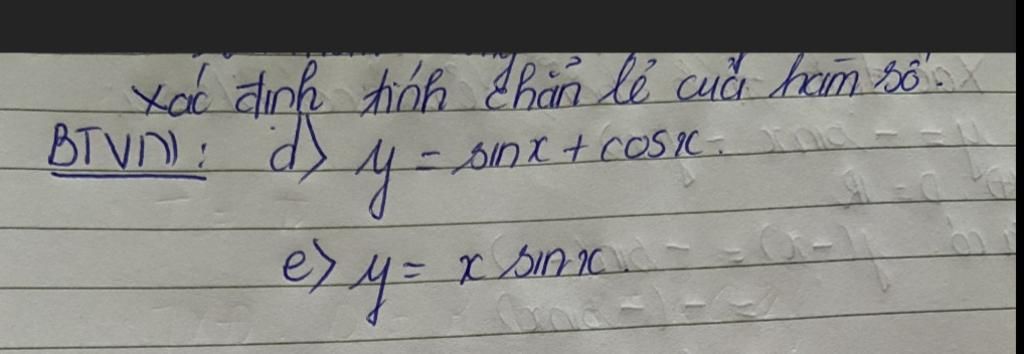 Xác định tính chẵn lẻ của hàm số.
BTVN: d) y = sinx + cosx.
e) y = x sinx.